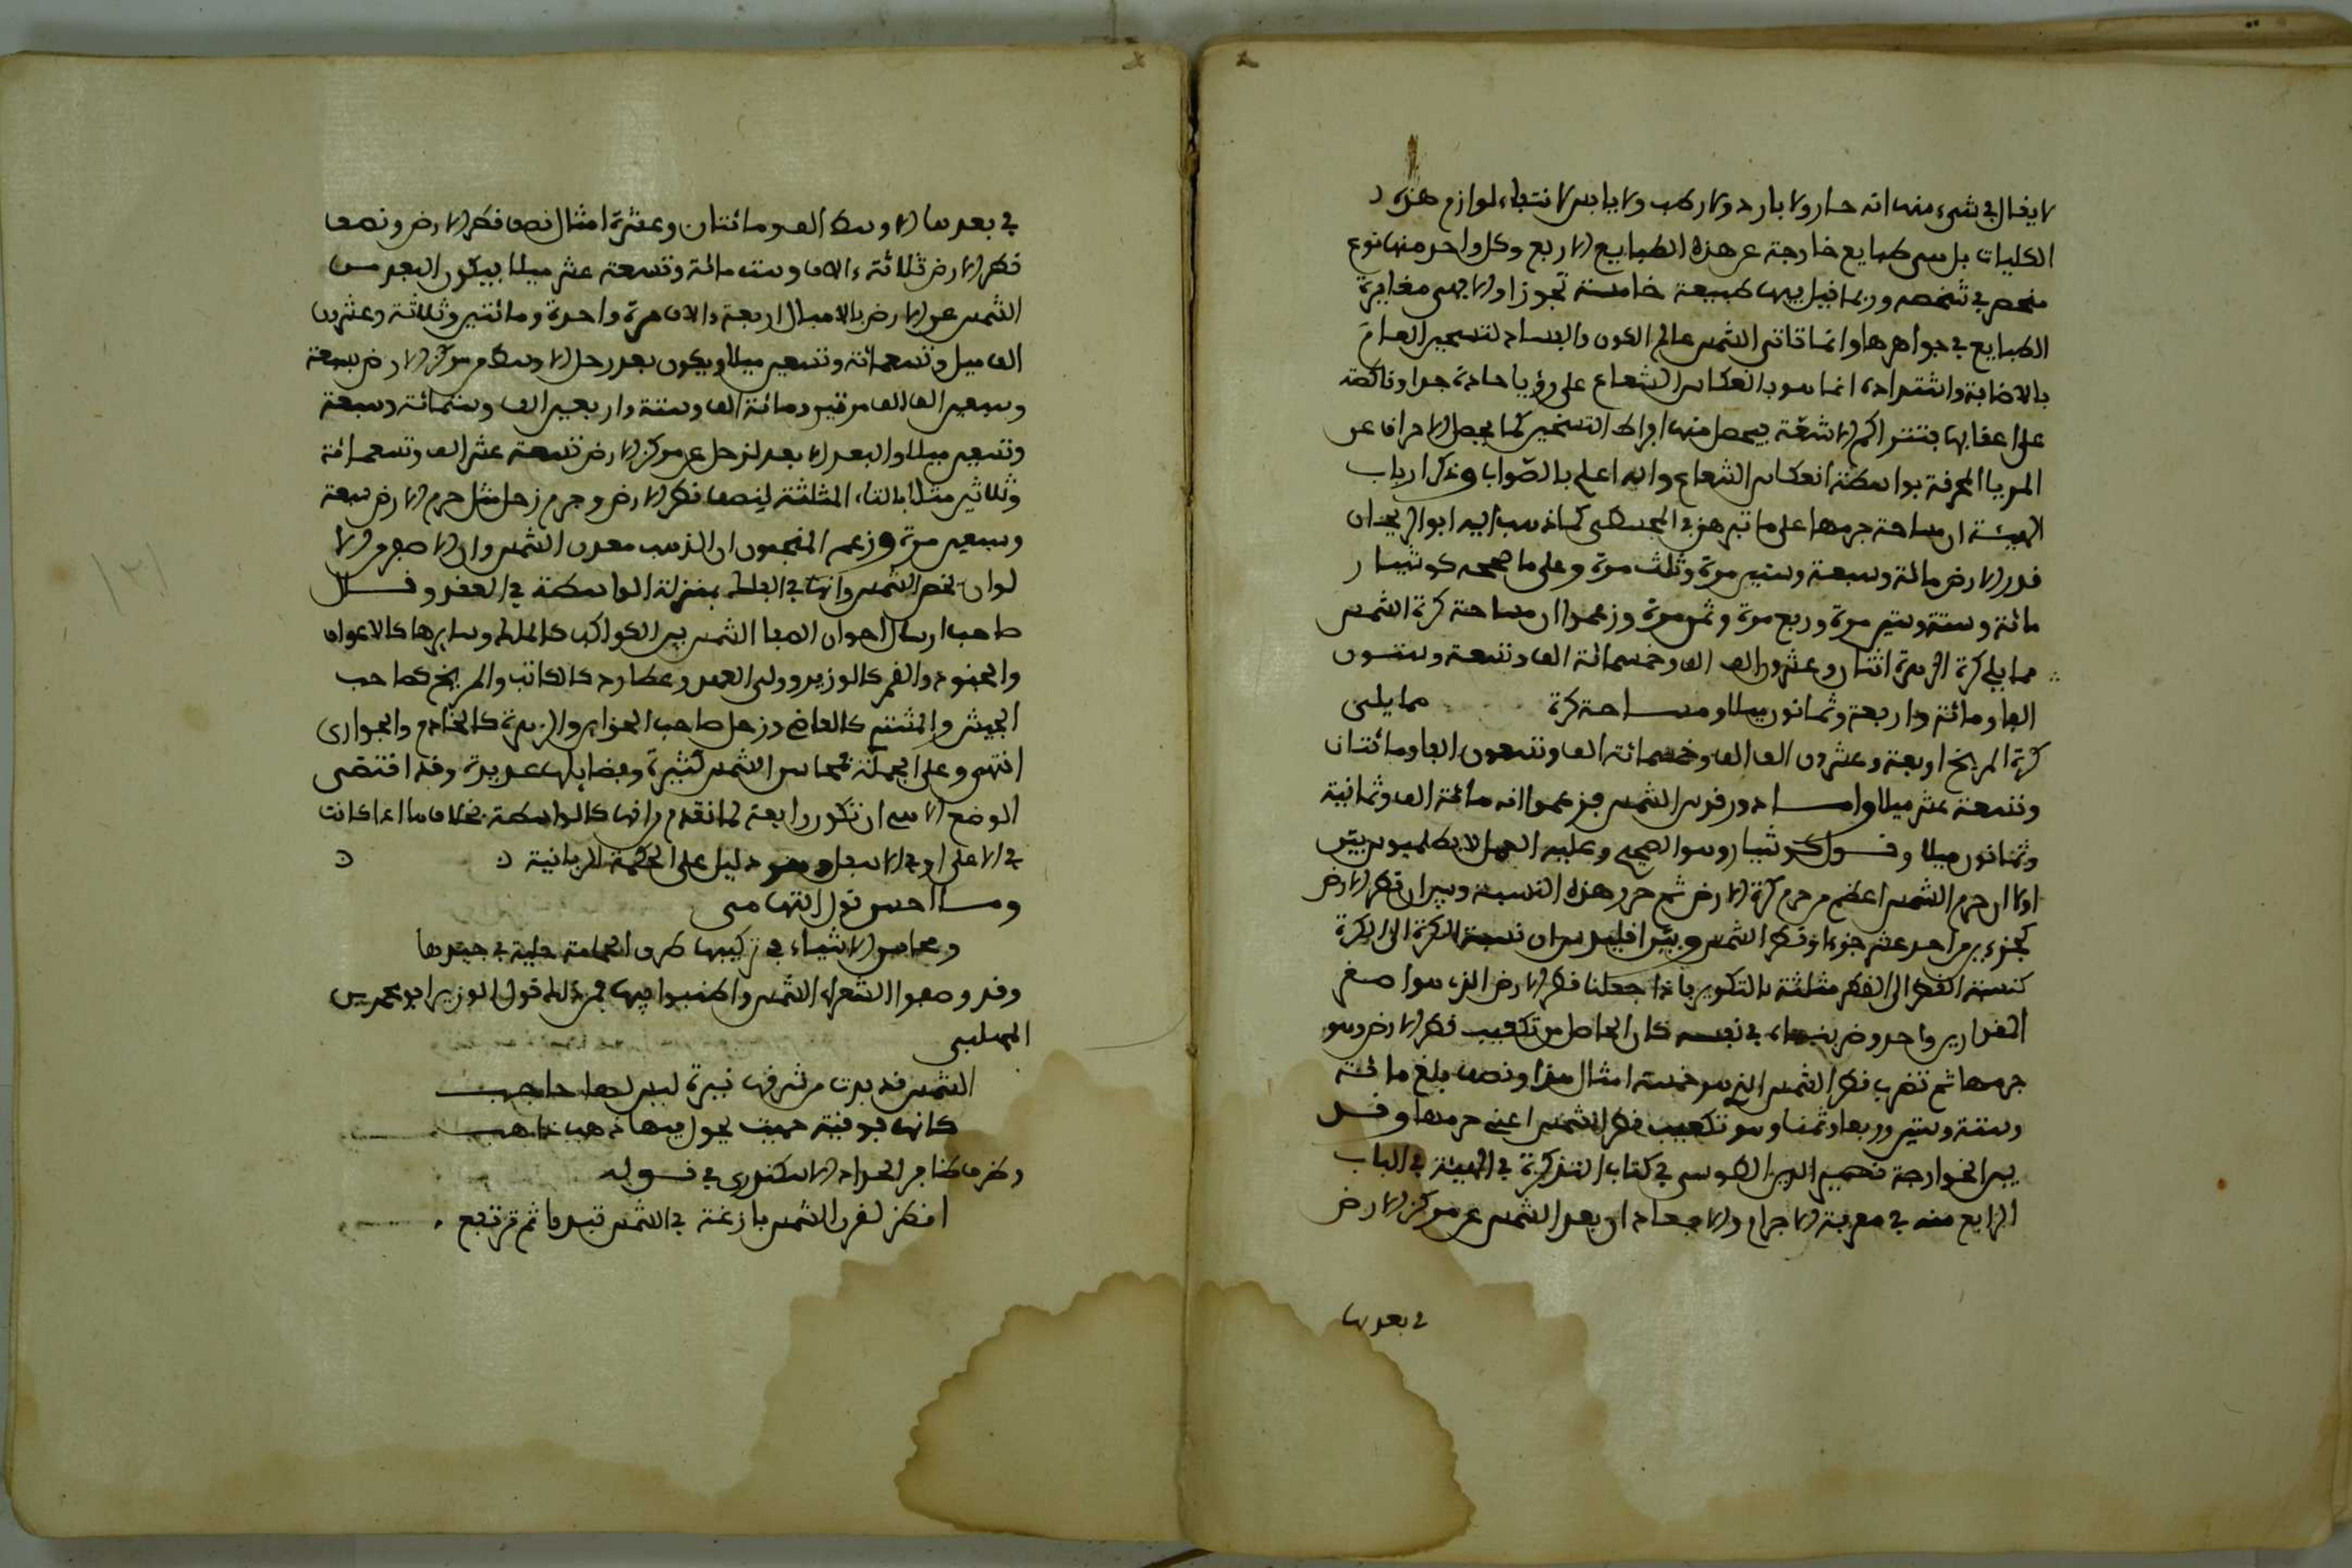 لا يقال في شيء منها انه حار ولا بارد ولا رطب ولا يابس لانتفاء لوازم هذه
الكليات بل هي طبايع خارجة عن هذه الطبايع الاربع وكل واحد منها نوع
منحصر في شخصه وربما قيل فيها طبيعة خامسة تجوزا والا فهي مغايرة
الطبايع في جواهرها وانما تاثير الشمس عالم الكون والفساد لتسخين العام
بالاضاءة واشتداده انما هو بانعكاس الشعاع على زوايا حادة جدا وناكصة
على اعقابها فتتراكم الاشعة فيحصل منها افراط التسخين كما يحصل الاحراق عن
المرايا المحرقة بواسطة انعكاس الشعاع والله اعلم بالصواب وذكر ارباب
الهيئة ان مساحة جرمها على ما تبرهن في المجسطي كما ذهب اليه ابو الريحان
قدر الارض مائة وسبعة وستين مرة وثلث مرة وعلى ما صححه كوشيار
مائة وستة وستين مرة وربع مرة وثمن مرة وزعموا ان مساحة كرة الشمس
مما يلي كرة الزهرة اثنان وعشرون الف الف وخمسمائة الف وتسعة وستون
الفا ومائة واربعة وثمانون ميلا ومساحة كرة مما يلي
كرة المريخ اربعة وعشرون الف الف وخمسمائة الف وتسعون الفا ومائتان
وتسعة عشر ميلا واما دور قرص الشمس فزعموا انه مائة الف وثمانية
وثمانون ميلا وقول كوشيار هو الصحيح وعليه العمل لان بطلميوس بين
اولا ان جرم الشمس اعظم من جرم كرة الارض ثم حرر هذه النسبة وبين ان قطر الارض
كجزءين من احد عشر جزءا من قطر الشمس وبين اقليدس ان نسبة الكرة الى الكرة
كنسبة القطر الى القطر مثلثة بالتكرير فاذا جعلنا قطر الارض الذي هو اصغر
المقدارين واحدا وضربناه في نفسه كان الحاصل من تكعيب قطر الارض وهو
جرمها ثم نضرب قطر الشمس الذي هو خمسة امثال هذا ونصف بلغ مائة
وستة وستين وربعا وثمنا وهو تكعيب قطر الشمس اعني جرمها وقد
بين الخواجة نصير الدين الطوسي في كتاب التذكرة في الهيئة في الباب
الرابع منه في معرفة الاجرام والابعاد ان بعد الشمس عن مركز الارض
في بعدها
في بعدها الاوسط الف ومائتان وعشرة امثال نصف قطر الارض ونصف
قطر الارض ثلاثة ءالاف وستمائة وتسعة عشر ميلا فيكون البعد من
الشمس عن الارض بالاميال اربعة ءالاف مرة واحدة ومائتين وثلاثة وعشرين
الف ميل وتسعمائة وتسعين ميلا ويكون بعد زحل الاوسط من مركز الارض سبعة
وسبعين الف الف مرتين ومائة الف وستة واربعين الف وستمائة وسبعة
وتسعين ميلا والبعد الابعد لزحل عن مركز الارض تسعة عشر الف وتسعمائة
وثلاثين مثلا بالثاء المثلثة لنصف قطر الارض وجرم زحل مثل جرم الارض سبعة
وسبعين مرة وزعم المنجمون ان الذهب معدن الشمس وان الاصفر من الا
لوان تخص الشمس وانها في الفلك بمنزلة الواسطة في العقد وقال
صاحب ارسال اخوان الصفا الشمس بين الكواكب كالملك وسايرها كالاعوان
والجنود والقمر كالوزير وولي العهد وعطارد كالكاتب والمريخ كصاحب
الجيش والمشتري كالقاضي وزحل صاحب الخزاين والزهرة كالخادم والجواري
انتهى وعلى الجملة فمحاسن الشمس كثيرة وفضايلها عديدة وقد اقتضى
الوضع الالهي ان تكون رابعة لما تقدم من انها كالواسطة بخلاف ما اذا كانت
في الاعلى او في الاسفل وهو دليل على الحكمة الربانية
وما احسن قول التهامي
ومحاسن الاشياء في تركيبها طوق الحمامة حلية في جيدها
وقد وصفوا الشعراء الشمس واطنبوا فيها فمن ذلك قول الوزير ابو محمد بن
المهلبي
الشمس قد بدت من مشرقها نيرة ليس لها حاجب
كانها بوتقة حميت يجول فيها ذهب ذاهب
وظرف ظافر الحداد الاسكندري في قوله
انظر لقرن الشمس بازغة في الشمس تبدو ثم ترتفع